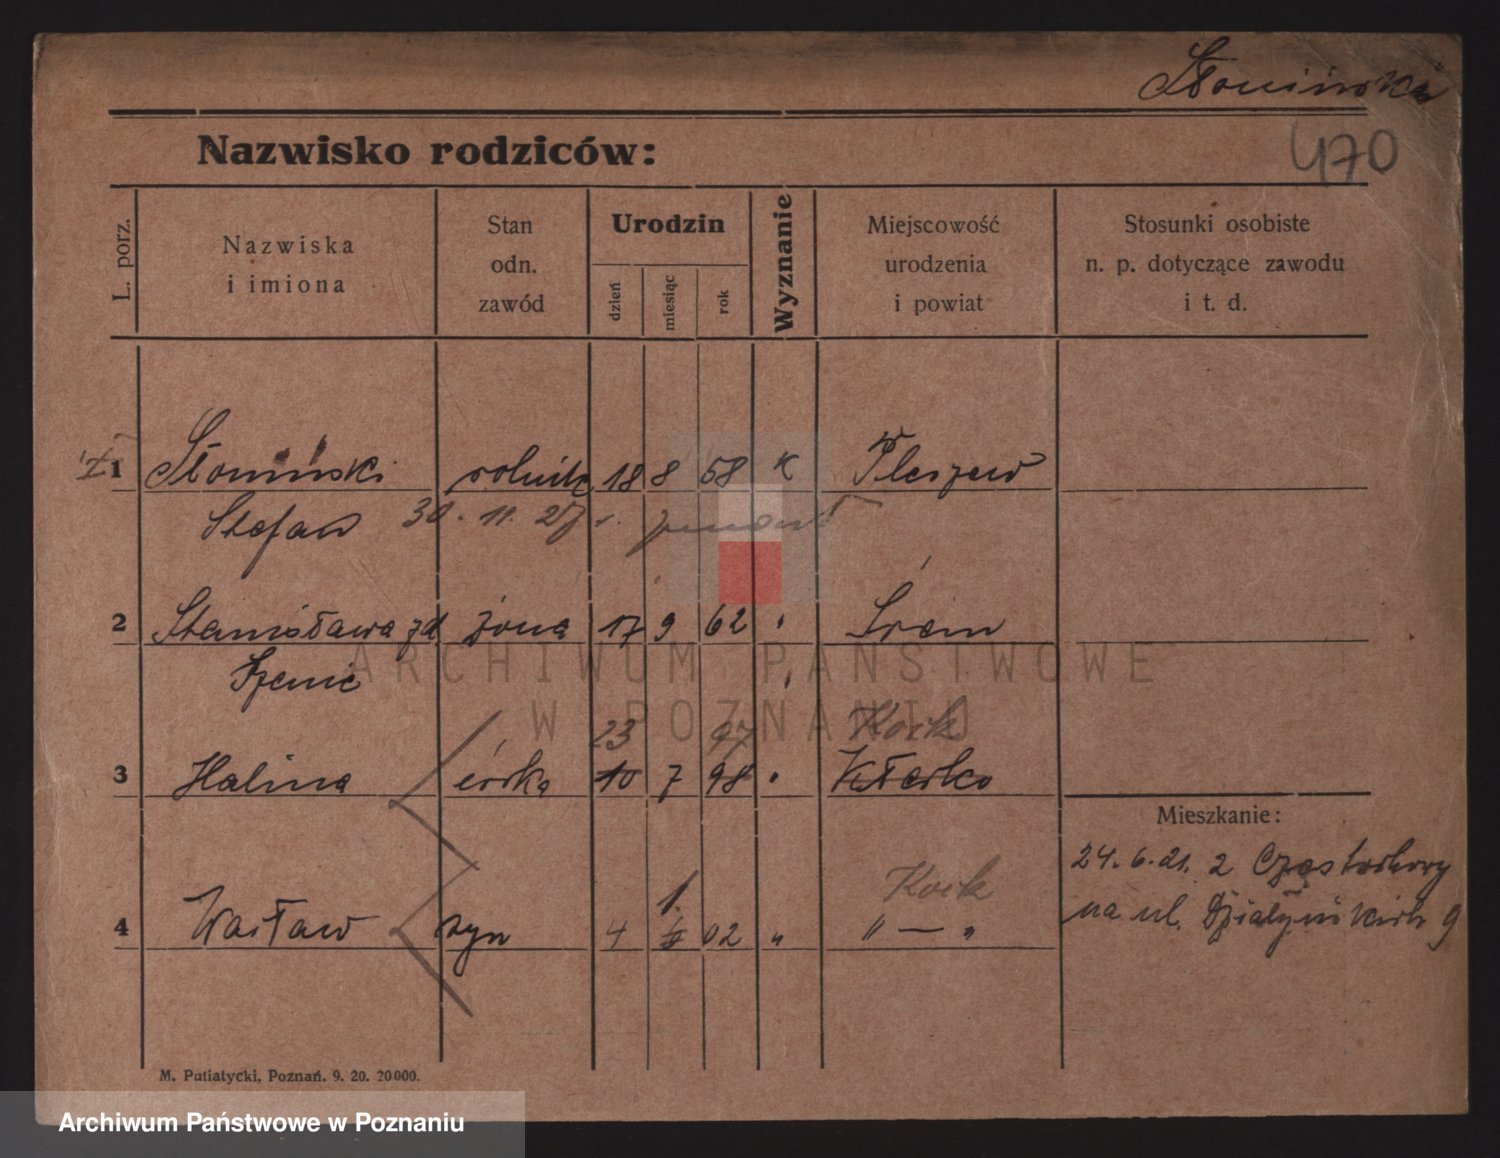 Słomiński
470
Nazwisko rodziców:
L. porz.
Nazwiska
i imiona
Stan
odn.
zawód
Urodzin
dzień
miesiąc
rok
Wyznanie
Miejscowość
urodzenia
i powiat
Stosunki osobiste
n. p. dotyczące zawodu
i t. d.
1 Słomiński rolnik 18 8 58 K Pleszew
Stefan 30. 11. 27
2 Stanisława zd żona 17 9 62 " Śrem
ARCHIWUM PAŃSTWOWE
W POZNANIU
23 97
3 Halina córka 10 7 98 " Kłecko
Mieszkanie:
24. 6. 21. 2 Częstochowy
1.
4 Wacław syn 4 02 " " — "
na ul. Działyńskich 9
M. Putiatycki, Poznań. 9. 20. 20000.
Archiwum Państwowe w Poznaniu